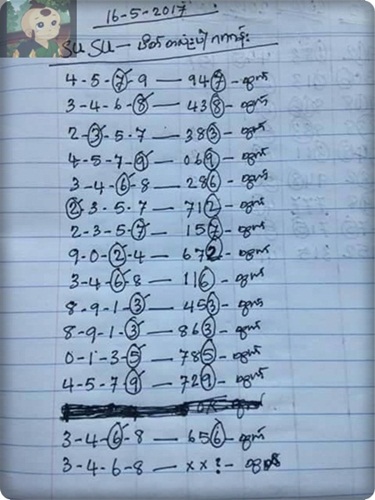 16-5-2017
SU SU — ပိတ်တလုံးပါ ဂဏန်း
4-5-7-9 — 947 - ထွက်
3-4-6-8 — 438 - ထွက်
2-3-5-7 — 383 - ထွက်
4-5-7-9 — 069 - ထွက်
3-4-6-8 — 286 - ထွက်
2-3-5-7 — 712 - ထွက်
2-3-5-7 — 157 - ထွက်
9-0-2-4 — 672 - ထွက်
3-4-6-8 — 116 - ထွက်
8-9-1-3 — 453 - ထွက်
8-9-1-3 — 863 - ထွက်
0-1-3-5 — 785 - ထွက်
4-5-7-9 — 729 - ထွက်
3-4-6-8 — 656 - ထွက်
3-4-6-8 — xx? - ထွက်